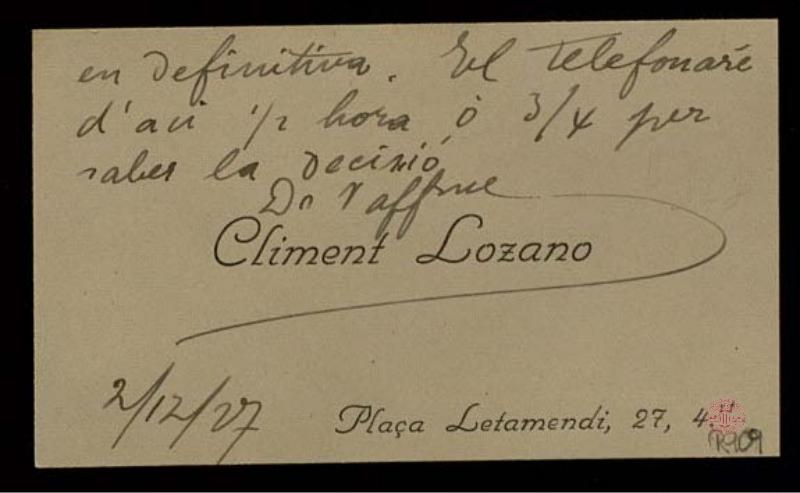 en definitiva. El telefonaré
d'aci 1/2 hora ó 3/4 per
saber la decisió
Climent Lozano
2/12/27
Plaça Letamendi, 27, 4.
R.909